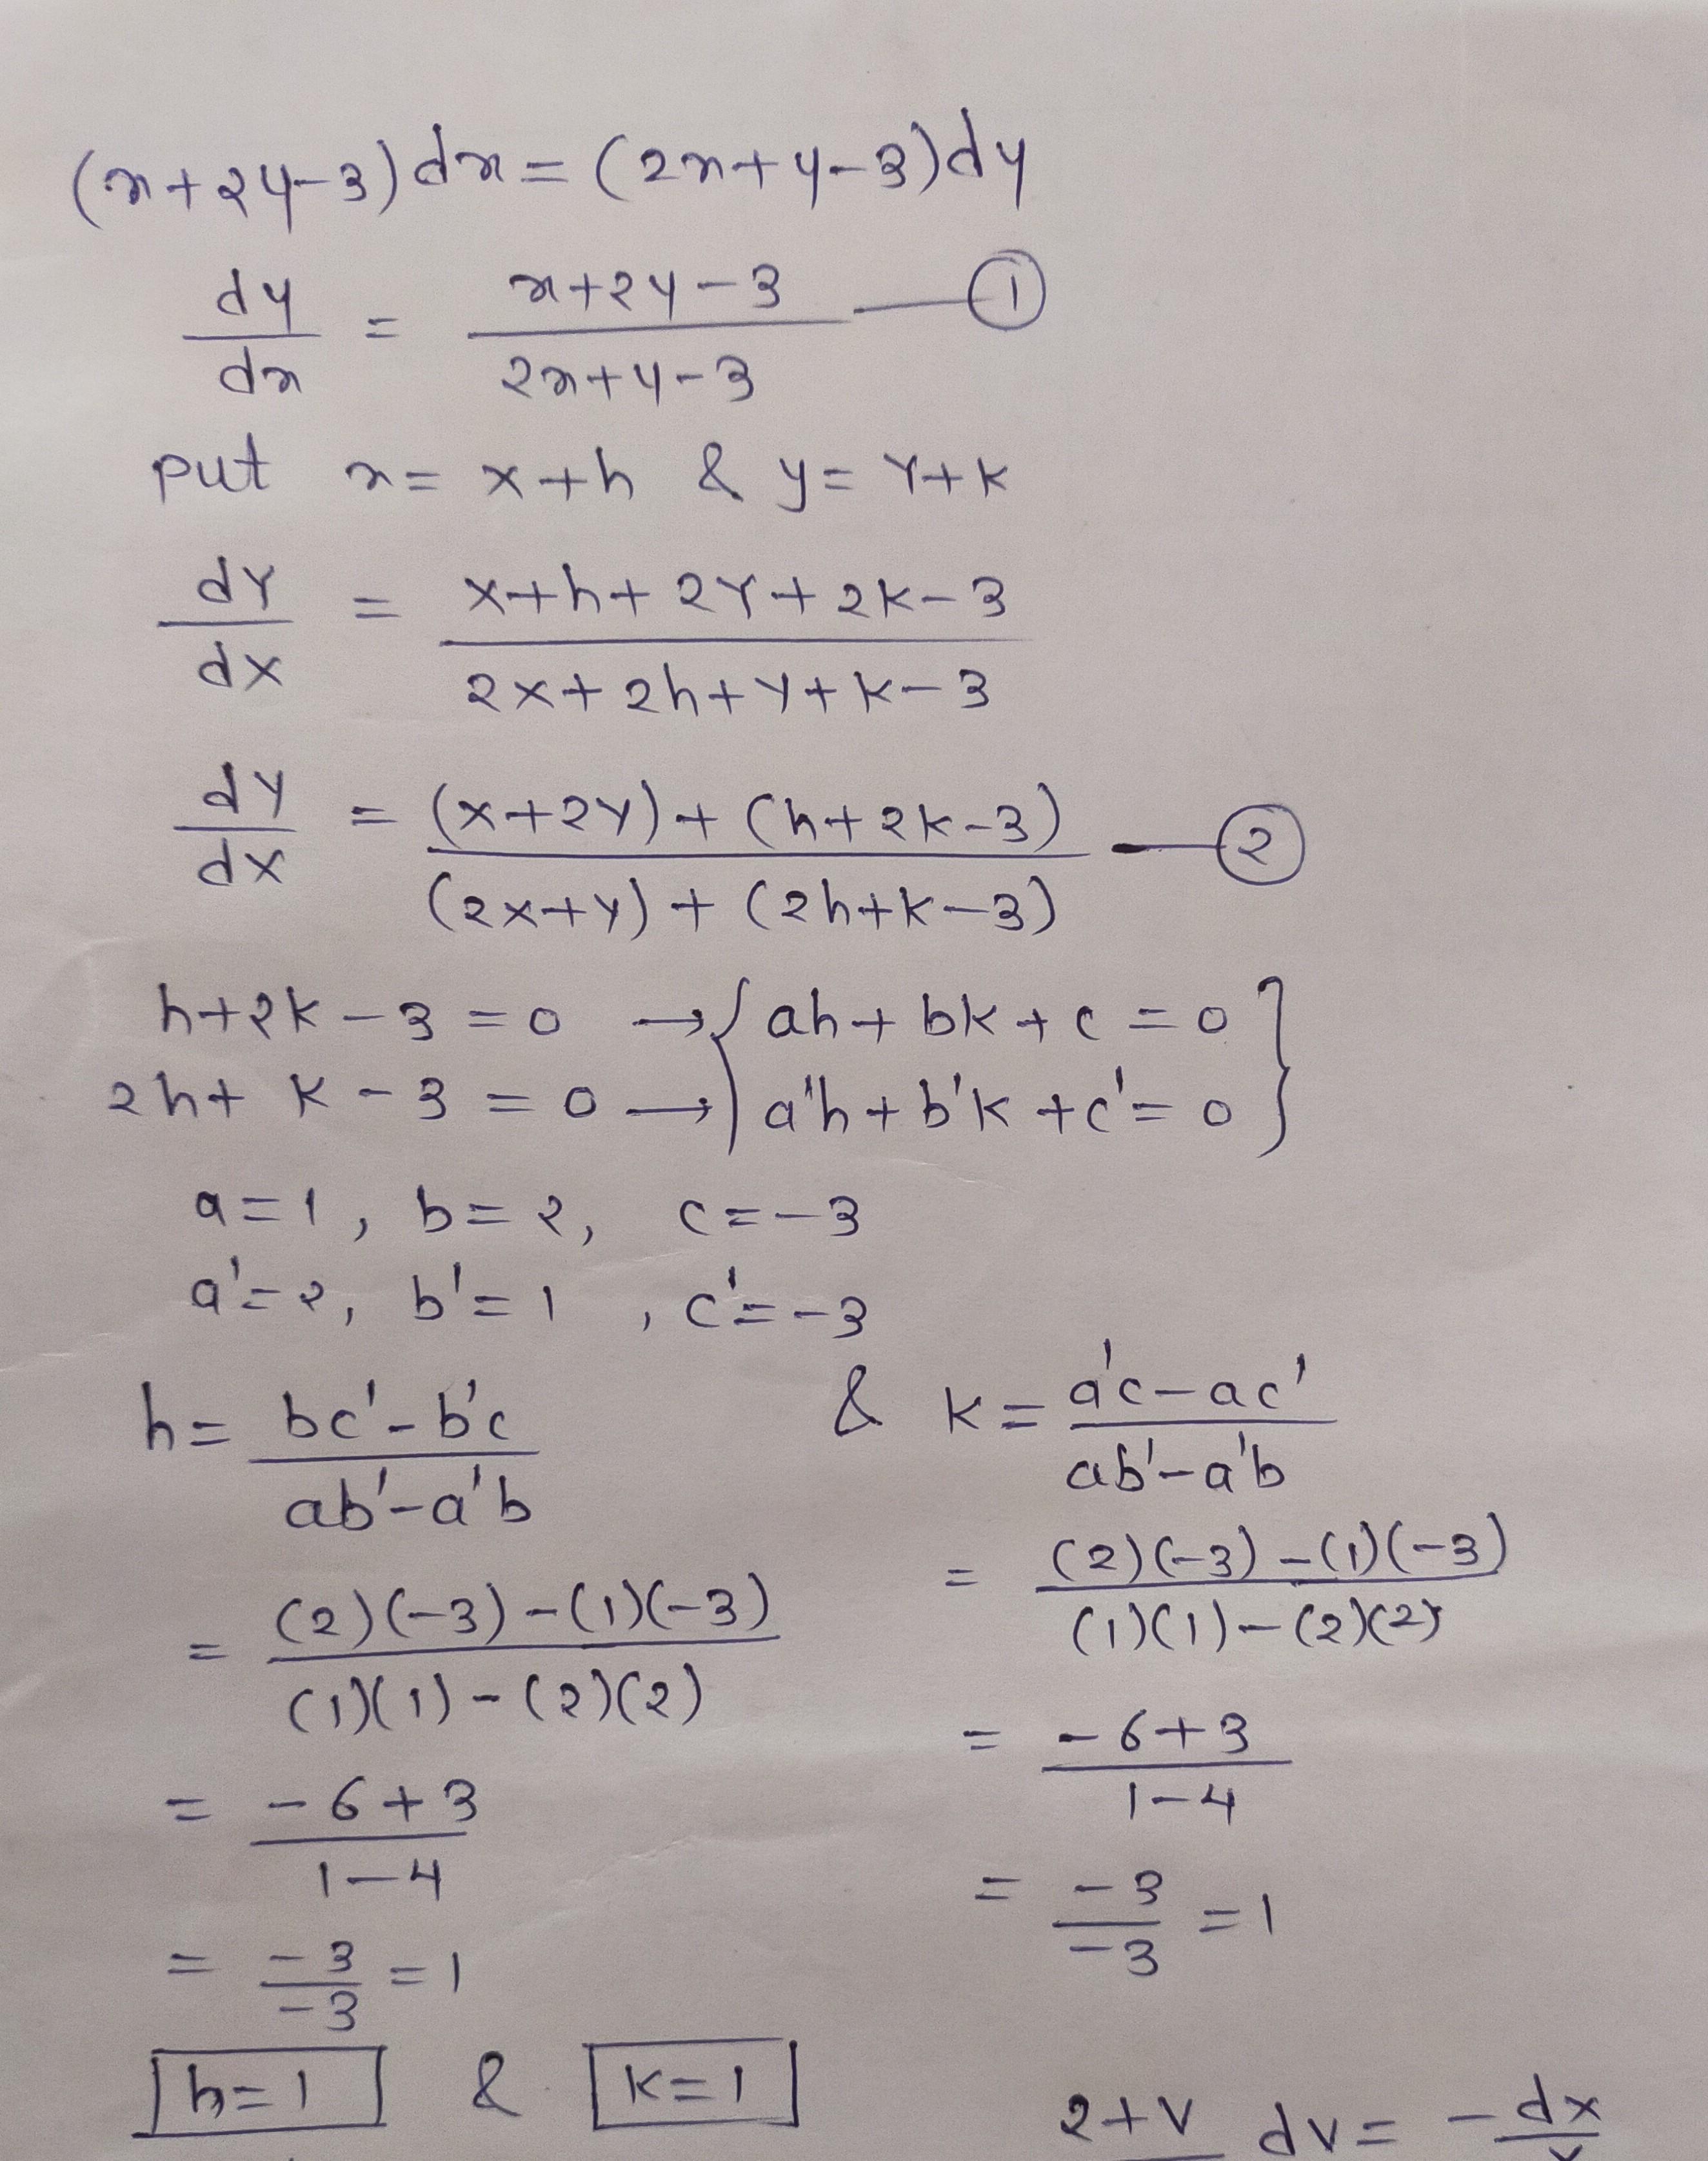 (x+2y-3)dx = (2x+y-3)dy
dy/dx = (x+2y-3)/(2x+y-3) — ①
put x = X+h & y = Y+k
dY/dX = (X+h+2Y+2k-3)/(2X+2h+Y+k-3)
dY/dX = ((X+2Y)+(h+2k-3))/((2X+Y)+(2h+k-3)) — ②
h+2k-3=0 → { ah+bk+c=0 }
2h+k-3=0 → { a'h+b'k+c'=0 }
a=1, b=2, c=-3
a'=2, b'=1, c'=-3
h = (bc'-b'c)/(ab'-a'b) & k = (a'c-ac')/(ab'-a'b)
= ((2)(-3)-(1)(-3))/((1)(1)-(2)(2)) = ((2)(-3)-(1)(-3))/((1)(1)-(2)(2))
= (-6+3)/(1-4) = (-6+3)/(1-4)
= -3/-3 = 1 = -3/-3 = 1
h=1 & k=1
2+v dv = - dx